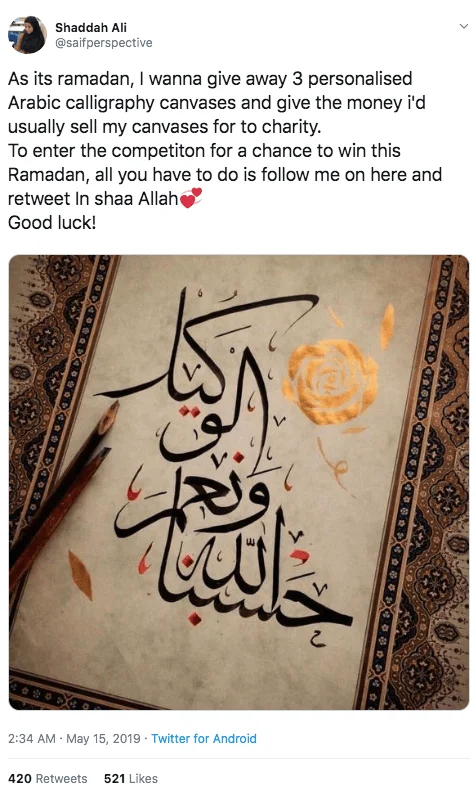 Shaddah Ali
@saifperspective
As its ramadan, I wanna give away 3 personalised
Arabic calligraphy canvases and give the money i'd
usually sell my canvases for to charity.
To enter the competiton for a chance to win this
Ramadan, all you have to do is follow me on here and
retweet In shaa Allah💞
Good luck!
حسبنا الله
ونعم
الوكيل
2:34 AM · May 15, 2019 · Twitter for Android
420 Retweets 521 Likes